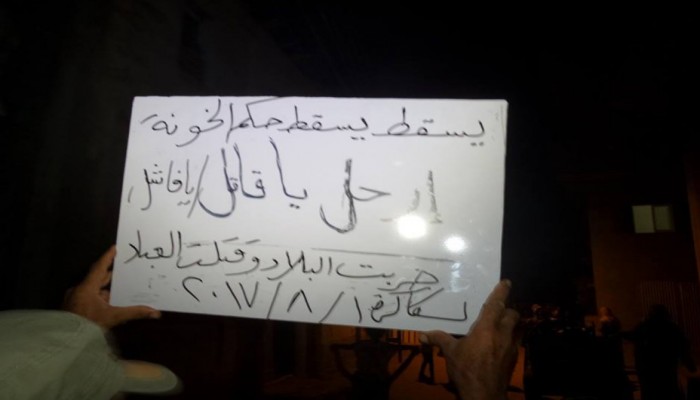 يسقط يسقط حكم الخونة
ارحل يا قاتل / يا فاشل
خربت البلاد وقتلت العباد
٢٠١٧/٨/١